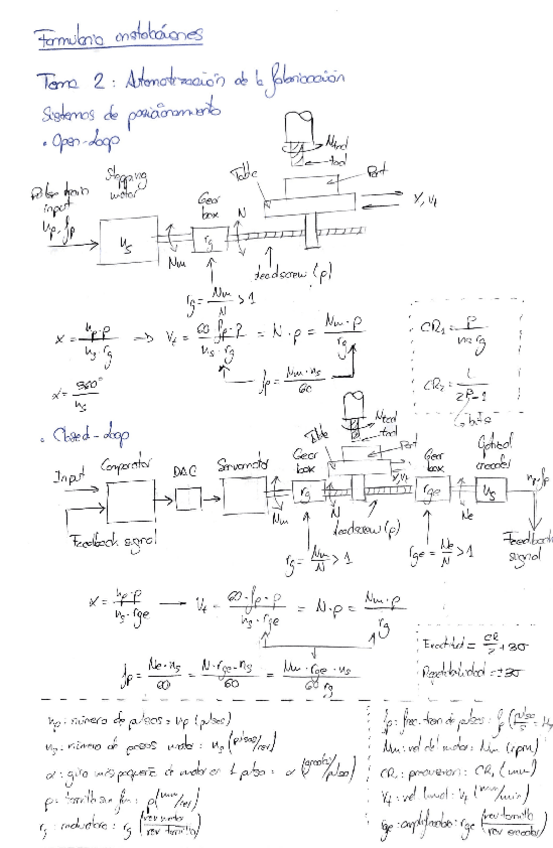 Formulario instalaciones
Tema 2: Automatización de la fabricación
Sistemas de posicionamiento
• Open-Loop
Ntool
tool
Part
Table
Stepping motor
Pulse train input
np, fp
ns
Nm
Gear box
rg
N
leadscrew (p)
x, vt
rg = Nm/N > 1
x = np·p/ns·rg → Vt = 60·fp·p/ns·rg = N·p = Nm·p/rg
fp = Nm·ns/60
α = 360°/ns
CR1 = p/ns·rg
CR2 = L/2^B-1
bits
• Closed-Loop
Input
Comparator
DAC
Servomotor
Gear box
rg
Nm
N
Table
Ntool
tool
Part
x, vt
leadscrew (p)
Gear box
rge
Ne
Optical encoder
ns
np, fp
Feedback signal
Feedback signal
rg = Nm/N > 1
rge = Ne/N > 1
x = np·p/ns·rge → Vt = 60·fp·p/ns·rge = N·p = Nm·p/rg
fp = Ne·ns/60 = N·rge·ns/60 = Nm·rge·ns/60 rg
Exactitud = CR/2 + 3σ
Repetibilidad = ±3σ
np: número de pulsos: np (pulsos)
ns: número de pasos motor: ns (pulsos/rev)
α: giro más pequeño de motor en 1 pulso: α (grados/pulso)
p: tornillo sin fin: p (mm/rev)
rg: reductora: rg (rev motor/rev tornillo)
fp: frec. tren de pulsos: fp (pulso/s = Hz
Nm: vel del motor: Nm (rpm)
CR1: precision: CR1 (mm)
Vt: vel lineal: Vt (mm/min)
rge: amplificadora: rge (rev tornillo/rev encoder)